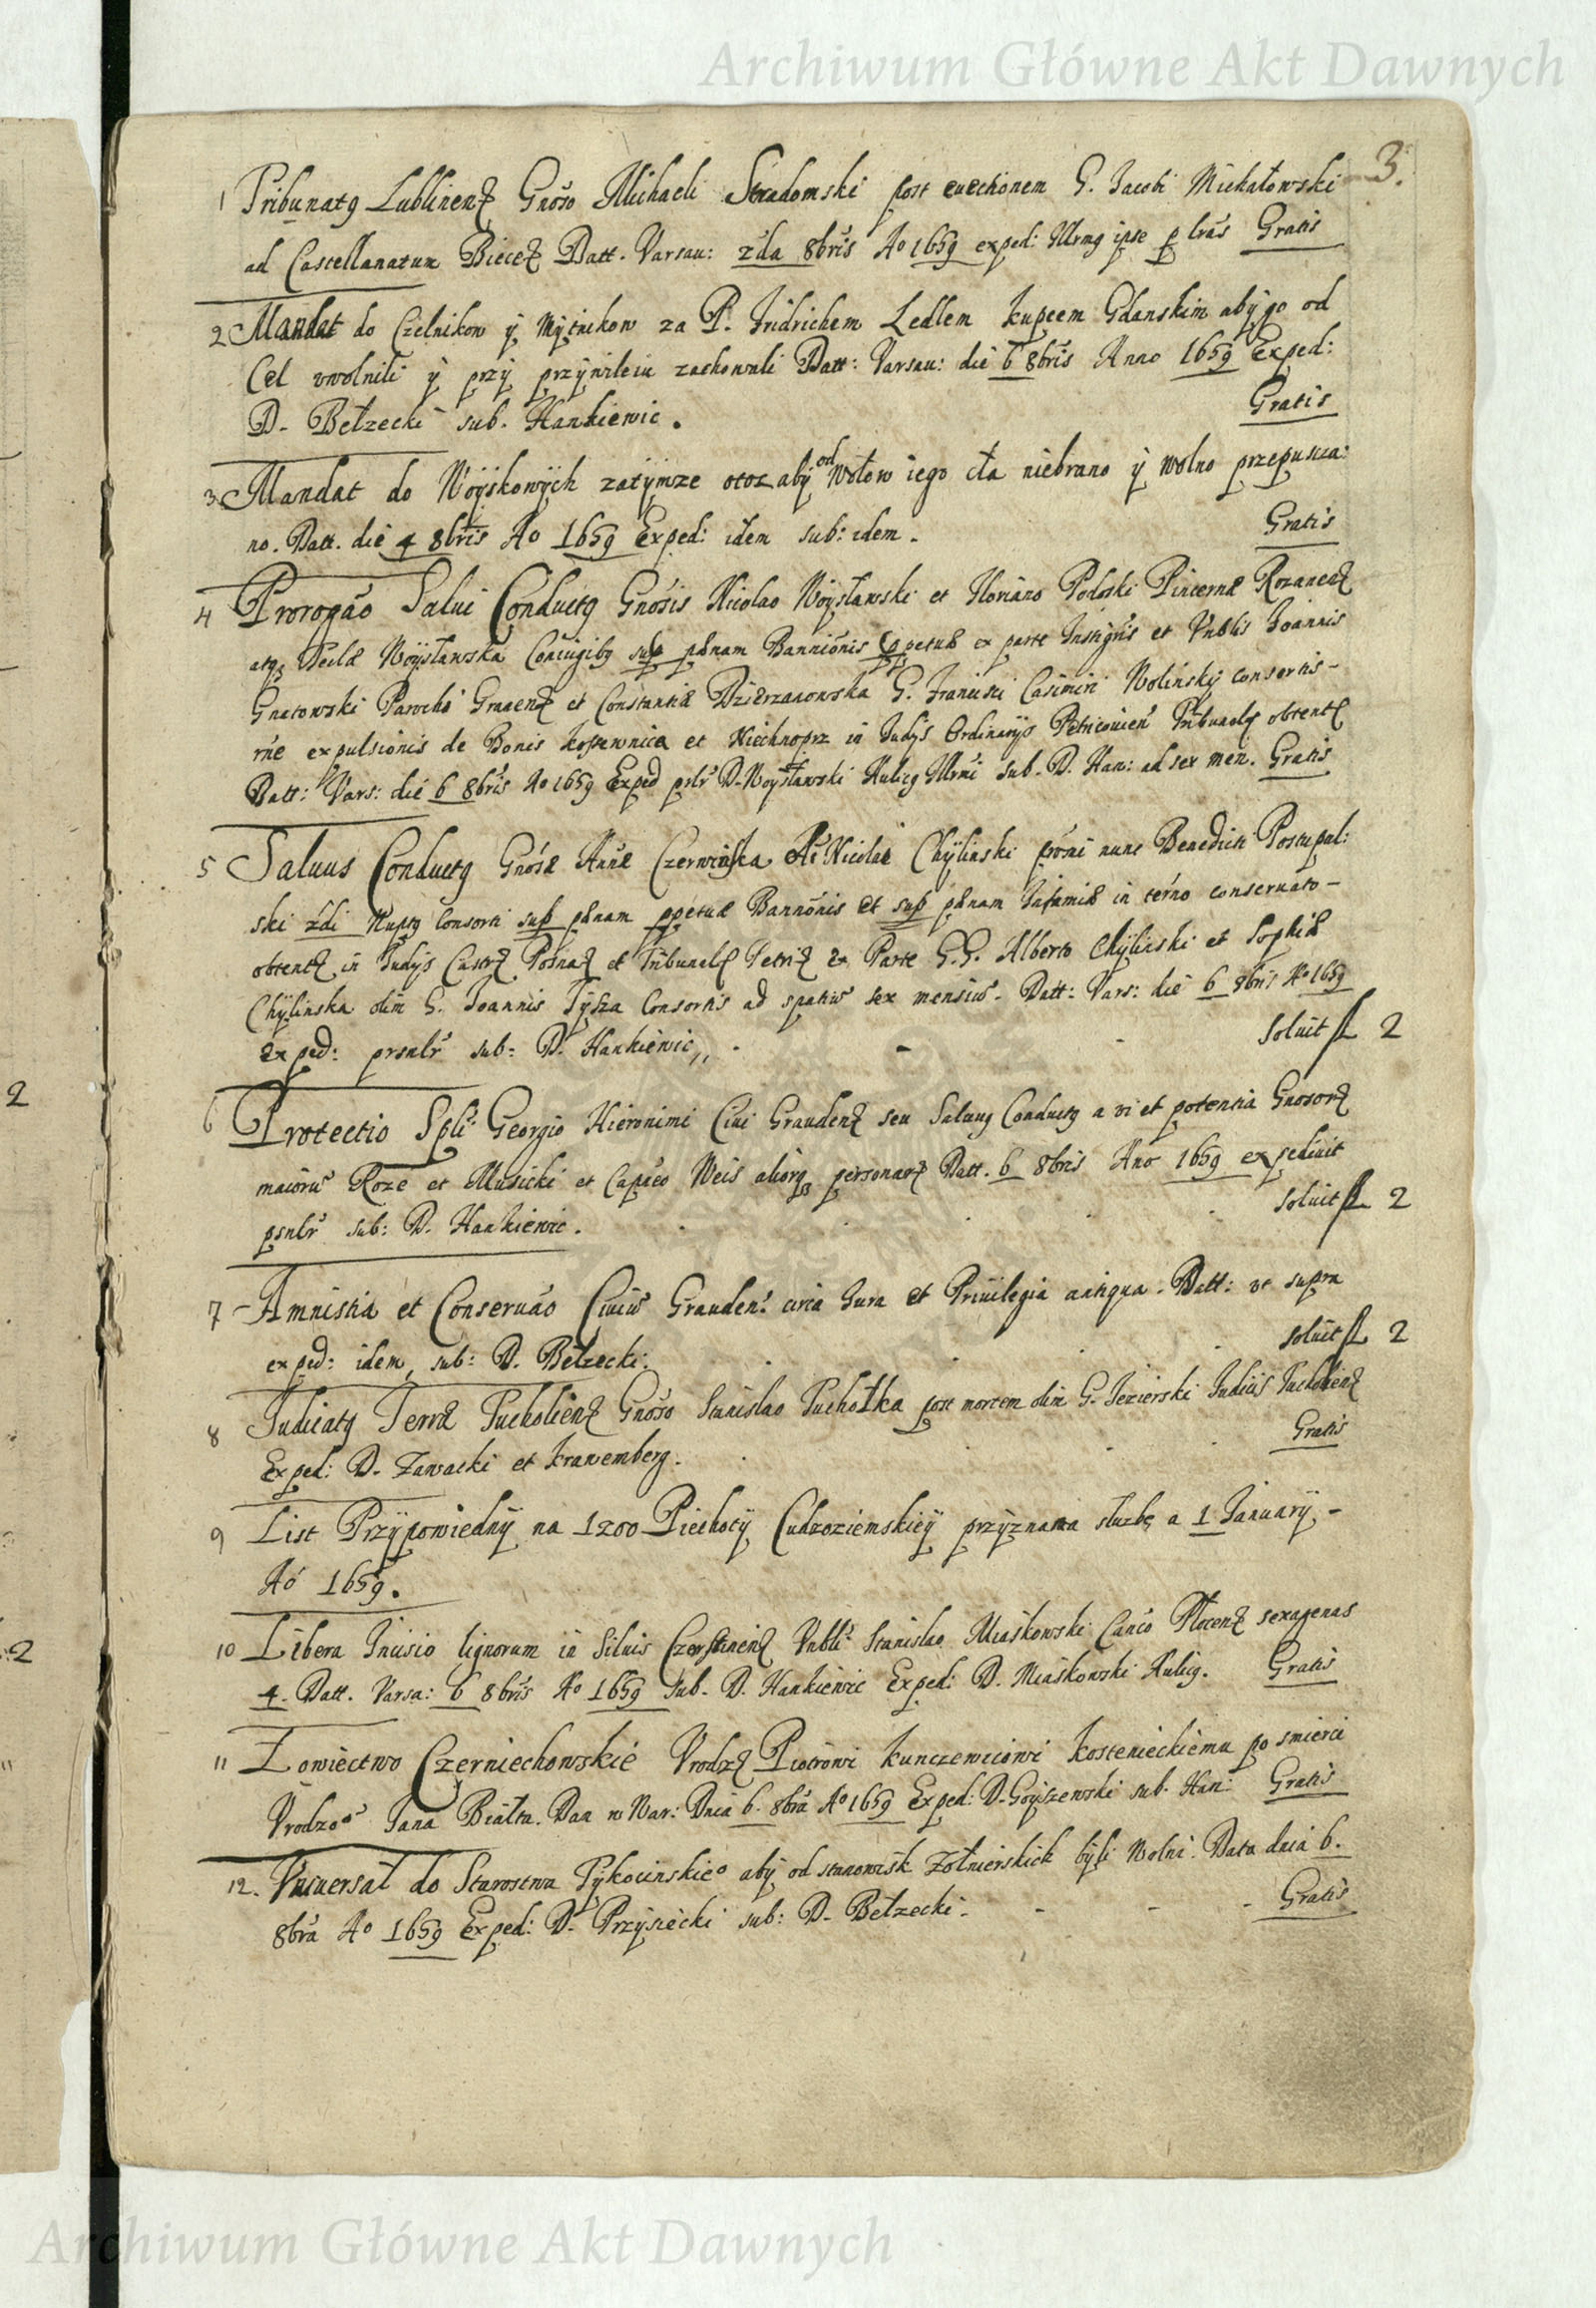 Archiwum Główne Akt Dawnych
3.
1 Tribunatg Lublinenz Gnoso Michaeli Stradomski post euectionem G. Iacobi Michałowski
ad Castellanatum Biecez Datt. Varsau: 2da 8bris Ao 1659 exped: Mrmg ipse p lras Gratis
2 Mandat do Czelnikow ÿ Mÿtnikow za P. Fridrichem Ledlem kupcem Gdanskim abÿ go od
Cel vwolnili ÿ przÿ przÿwileiu zachowali Datt: Varsau: die 6 8bris Anno 1659 Exped:
D. Bełzecki sub. Hankiewic. Gratis
3 Mandat do Woÿskowÿch zatÿmze otoz abÿ od wołow iego cła niebrano ÿ wolno przepuszza:
no. Datt. die 4 8bris Ao 1659 Exped: idem sub: idem. Gratis
4 Prorogao Salui Conductg Gnosis Nicolao Woÿsławski et Floriano Podoski Pincernæ Rozanenz
atq Teclæ Woÿsławska Coniugibg sup pænam Bannionis ppetuæ ex parte Instigris et Vnblis Ioannis
Gnatowski Parochi et Constantiæ Dzierzanowska G. Francisci Casimiri Wolinskÿ consortis-
rne expulsionis de Bonis et Niechnoprz in Iudÿs Ordinarÿs Petricouien Tribunalz obtentz
Datt: Vars: die 6 8bris Ao 1659 Exped D. Woÿsławski Aulicg Mrni sub. D. Han: ad sex men. Gratis
5 Saluus Conductg Gnosæ Annæ Czerwinska Nicolai Chÿlinski primi nunc Benedicti Postupal:
ski 2di Nuptg Consorti sup pænam ppetuæ Bannonis et sup pænam Infamiæ in terno conseruato-
obtentz in Iudÿs Castrz Posnaz et Tribunalz Petriz ex Parte G.G. Alberto Chÿlinski et Sophiæ
Chÿlinska olim G. Ioannis Tÿsza Consortis ad spatiu sex mensiu. Datt: Vars: die 6 8bris Ao 1659
exped: prsnlr sub: D. Hankiewic,, soluit fl 2
6 Protectio Spli Georgio Hieronimi Ciui Graudenz seu Saluug Conductg a vi et potentia Gnosorz
maioru Roze et Musicki et Capneo Weis aliorq personarz Datt. 6 8bris Ano 1659 expediuit
psnlr sub: D. Hankiewic. soluit fl 2
7 Amnistia et Conseruao Ciuiu Grauden: circa Iura et Priuilegia antiqua. Datt: vt supra
exped: idem, sub: D. Bełzecki. soluit fl 2
8 Iudicatg Terræ Tucholienz Gnoso Stanislao Tuchołka post mortem olim G. Iezierski Iudicis Tucholienz
Exped: D. Zawacki et Krawemberg. Gratis
9 List Przÿpowiednÿ na 1200 Piechotÿ Cudzoziemskieÿ przÿznana służbę a 1 Ianuarÿ,-
Ao 1659.
10 Libera Incisio lignorum in Siluis Vnbli Stanislao Miaskowski Canco Plocenz sexagenas
4. Datt. Varsa: 6 8bris Ao 1659 sub. D. Hankiewic Exped: D. Miaskowski Aulicg. Gratis
11 Łowiectwo Czerniechowskie Vrodzz Piotrowi Kunczewiciowi Kostenieckiemu po smierci
Vrodzo Iana Białta. Dan w War: Dnia 6. 8bra Ao 1659 Exped: D. Goÿszewski sub. Han: Gratis
12. Vniuersał do Starostwa Tÿkocinskieo abÿ od stanowisk Zołnierskich bÿli Wolni. Data dnia 6.
8bra Ao 1659 Exped: D. Przÿsiecki sub: D. Bełzecki. Gratis
2
2
Archiwum Główne Akt Dawnych